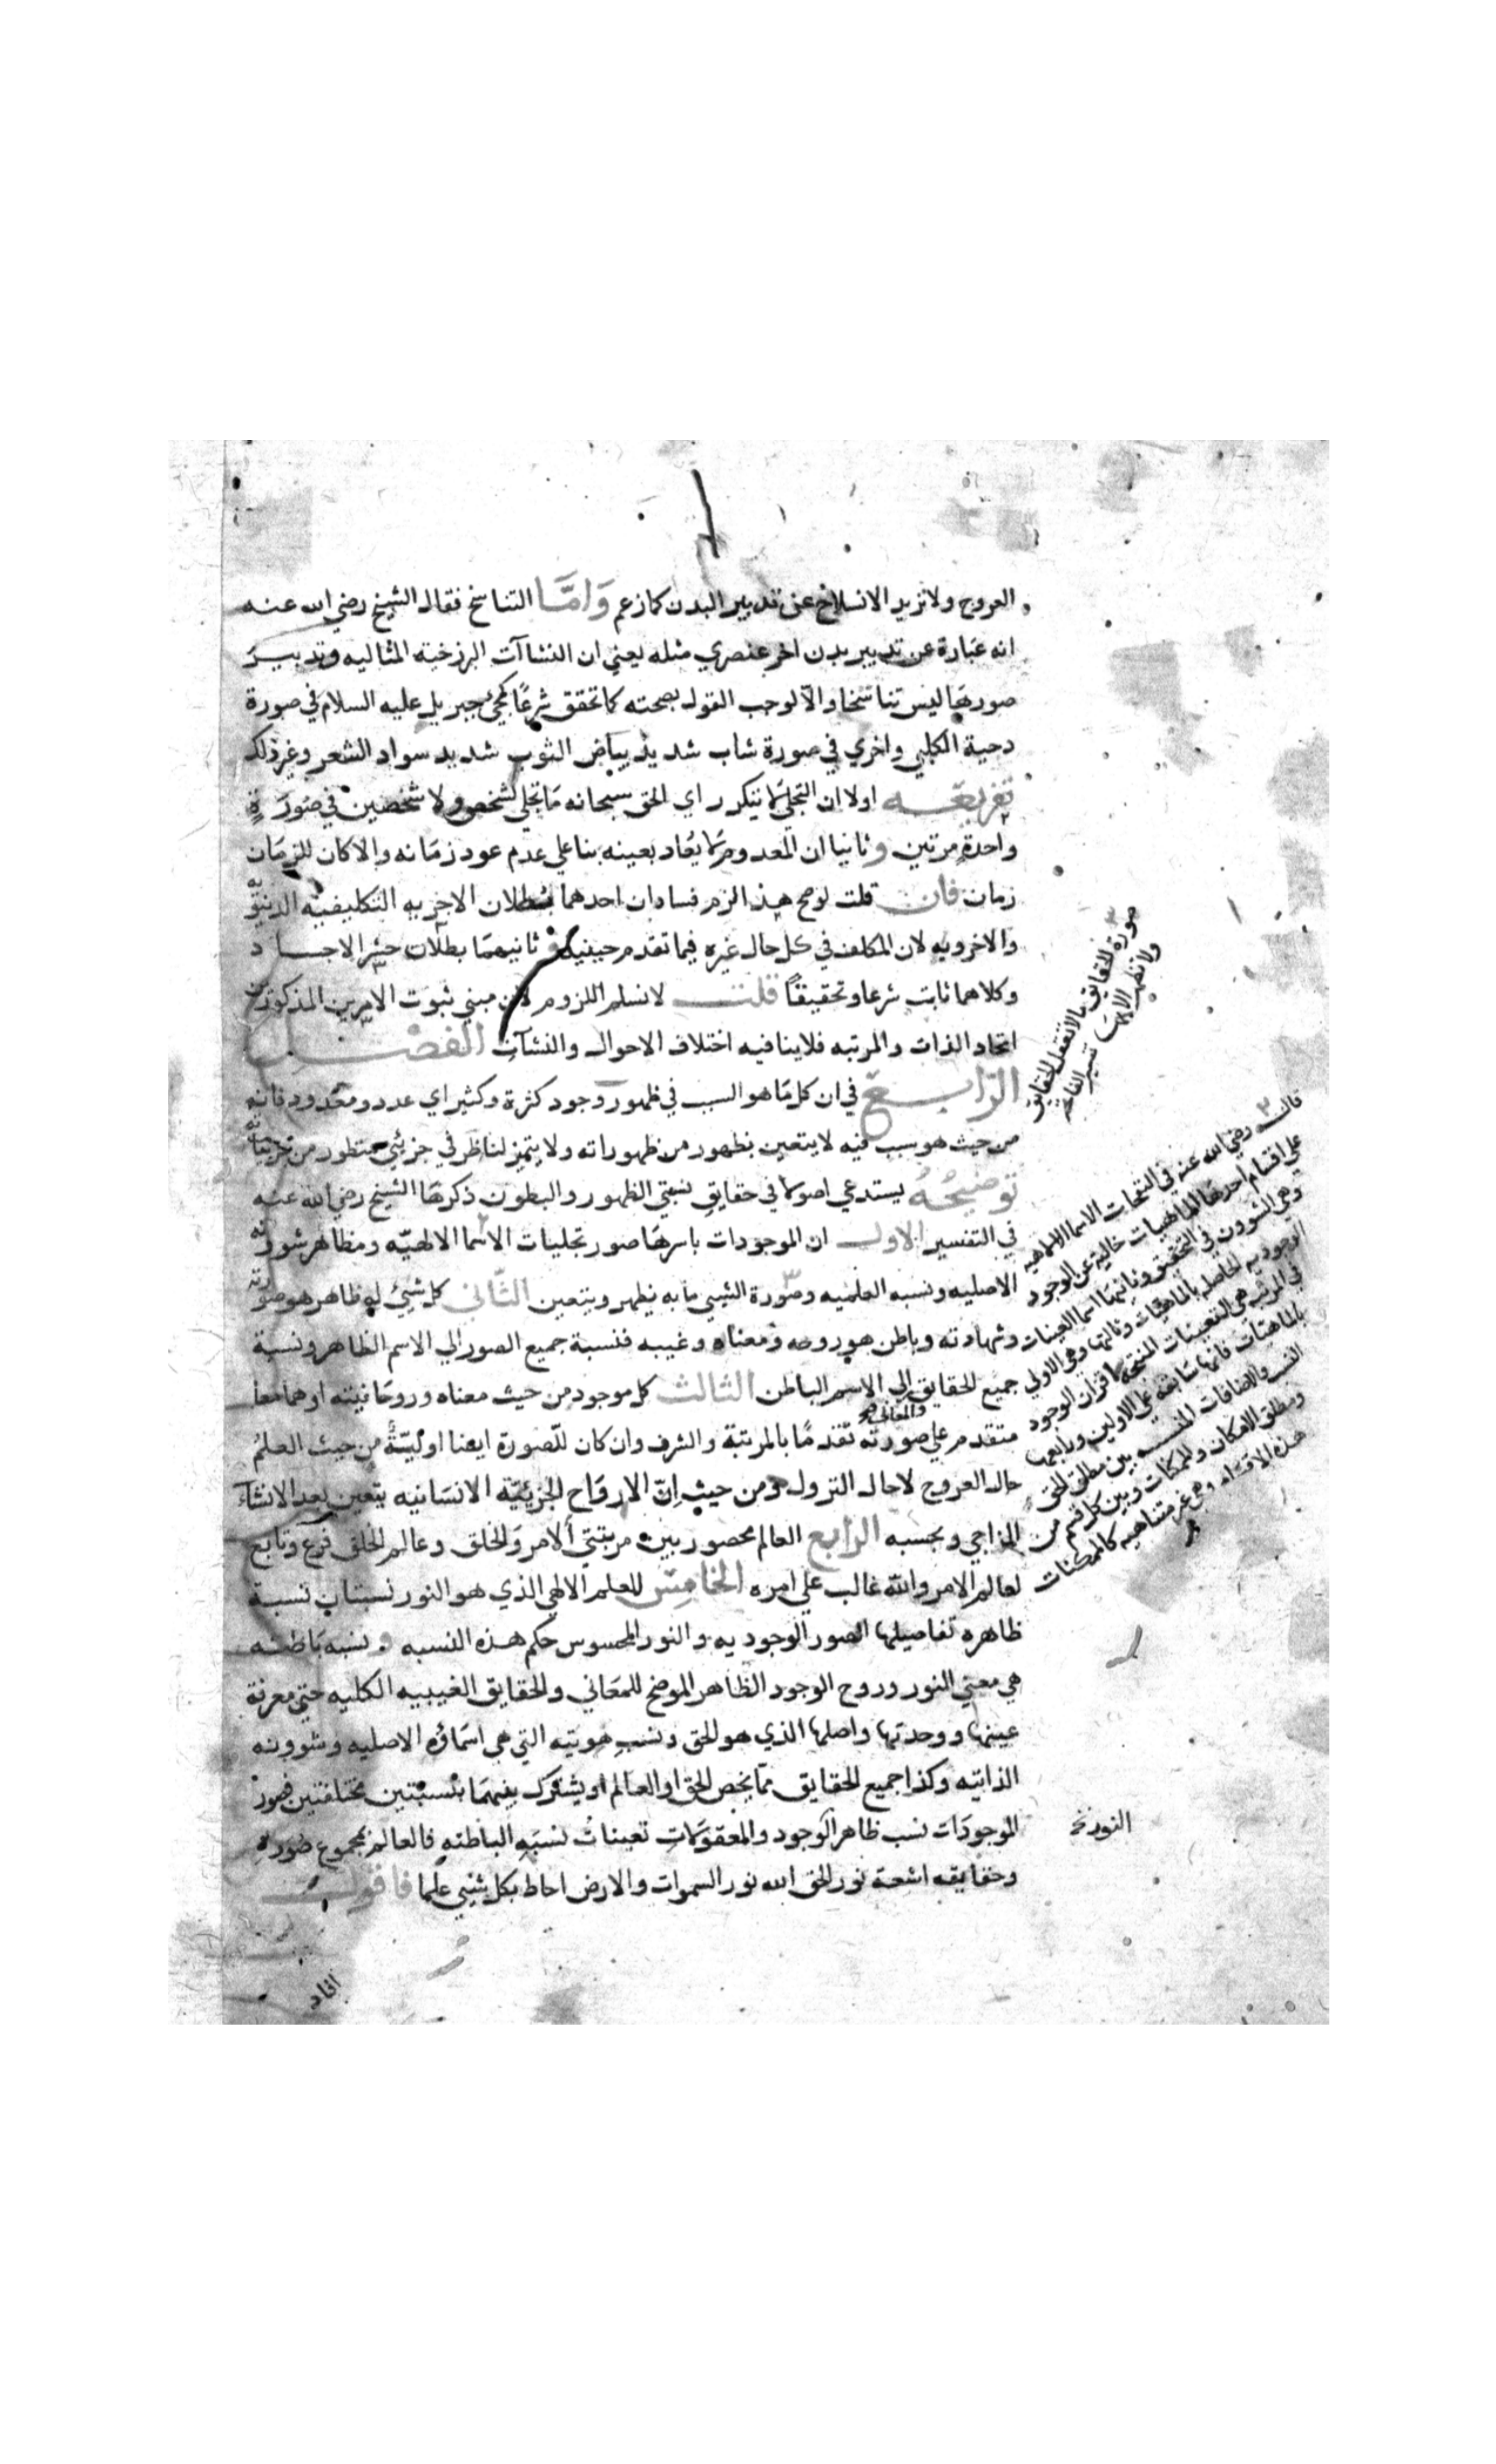 العروج ولا نريد الانسلاخ عن تدبير البدن كما زعم وَامَّا التناسخ فقال الشيخ رضي الله عنه
انه عبارة عن تدبير بدن اخر عنصري مثله يعني ان النشاآت البرزخية المثاليه وتدبير
صورها ليس تناسخا والّا لوجب القول بصحته كما تحقق شرعًا كمجئ جبريل عليه السلام في صورة
دحية الكلبي واخري في صورة شاب شديد بياض الثوب شديد سواد الشعر وغير ذلك
تفريعه اولا ان التجلي لا يتكرر اي الحق سبحانه ما تجلي لشخص ولا شخصين في صورَةٍ
واحدةٍ مرتين وثانيا ان المعدوم لا يُعاد بعينه بنا علي عدم عود زمانه والا كان للزمان
زمان فان قلت لو صح هذا لزم فسادان احدهما بطلان الاجزيه التكليفيّه الدنيويّه
والاخرويه لان المكلف في كل حال غيره فيما تقدم حينئذ وثانيهما بطلان حشر الاجساد
وكلاهما ثابت شرعا وتحقيقًا قلت لا نسلم اللزوم لان مبني ثبوت الامرين المذكورين
اتحاد الذات والمرتبه فلا ينافيه اختلاف الاحوال والنشآت الفصل
الرّابع في ان كل ما هو السبب في ظهور وجود كثرة وكثير اي عدد ومعدود فانه
من حيث هو سبب فيه لا يتعين بظهور من ظهوراته ولا يتميز لناظر في جزئي متطور من جزئياته
توضيحُهُ يستدعي اصولا في حقايق نسبتي الظهور والبطون ذكرها الشيخ رضي الله عنه
في التفسير الاول ان الموجودات باسرها صور تجليات الاسما الالهيّه ومظاهر شوونه
الاصليه ونسبه العلميه وصورة الشيئ ما به يظهر ويتعين الثّاني كل شيئ له ظاهر هو صورته
وشهادته وباطن هو روحه ومعناه وغيبه فنسبة جميع الصور الي الاسم الظاهر ونسبة
جميع الحقايق والمعاني صح الي الاسم الباطن الثالث كل موجود من حيث معناه وروحانيته او هما معا
متقدم علي صورته تقدمًا بالمرتبة والشرف وان كان للّصورة ايضا اوليّة من حيث العلم
حال العروج لا حال النزول ومن حيث اِنّ الارواح الجزئيّة الانسانيه يتعين بعد الانشاء
المزاجي وبحسبه الرابع العالم محصور بين مرتبتي الامر وَالخلق وعالم الخلق فرع وتابع
لعالم الامر والله غالب علي امره الخامس للعلم الالهي الذي هو النور نسبتان نسبة
ظاهره تفاصيلها الصور الوجوديه والنور المحسوس حكم هذه النسبه ونسبه باطنه
هي معني النور وروح الوجود الظاهر الموضح للمعَاني والحقايق الغيبيه الكليه حتي معرفة
عينها ووحدتها واصلها الذي هو الحق ونسب هويته التي هي اسماؤه الاصليه وشوونه
الذاتيه وكذا جميع الحقايق ممّا يخص الحق او العالم او يشترك بينهما بنسبتين مختلفتين فصور
الموجودَات نسب ظاهر الوجود والمعقولات تعينات نسبَهِ الباطنهِ فالعالم بمجموع صوره
وحقايقه اشعة نور الحق الله نور السموات والارض احاط بكل شيئ علمًا فاقول
صورة الحقايق
قال رضي الله عنه في النفحات الاسما الالهيه
علي اقسام احدها الماهيات خالية عن الوجود
وهي الشوون في التحقيق وثانيها اسما العينات
بالماهيات فانها سابقة علي الاولين ورابعها
النسب والاضافات المنتسبه بين مطلق الحق
ومطلق الامكان والممكنات وبين كل قسم من
هذه الاقسام وهي غير متناهيه كالممكنات
النور نخ
افاد